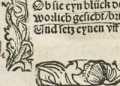 Ob sie eyn blück d
Worlich gesicht/br
Und setz eynen vff